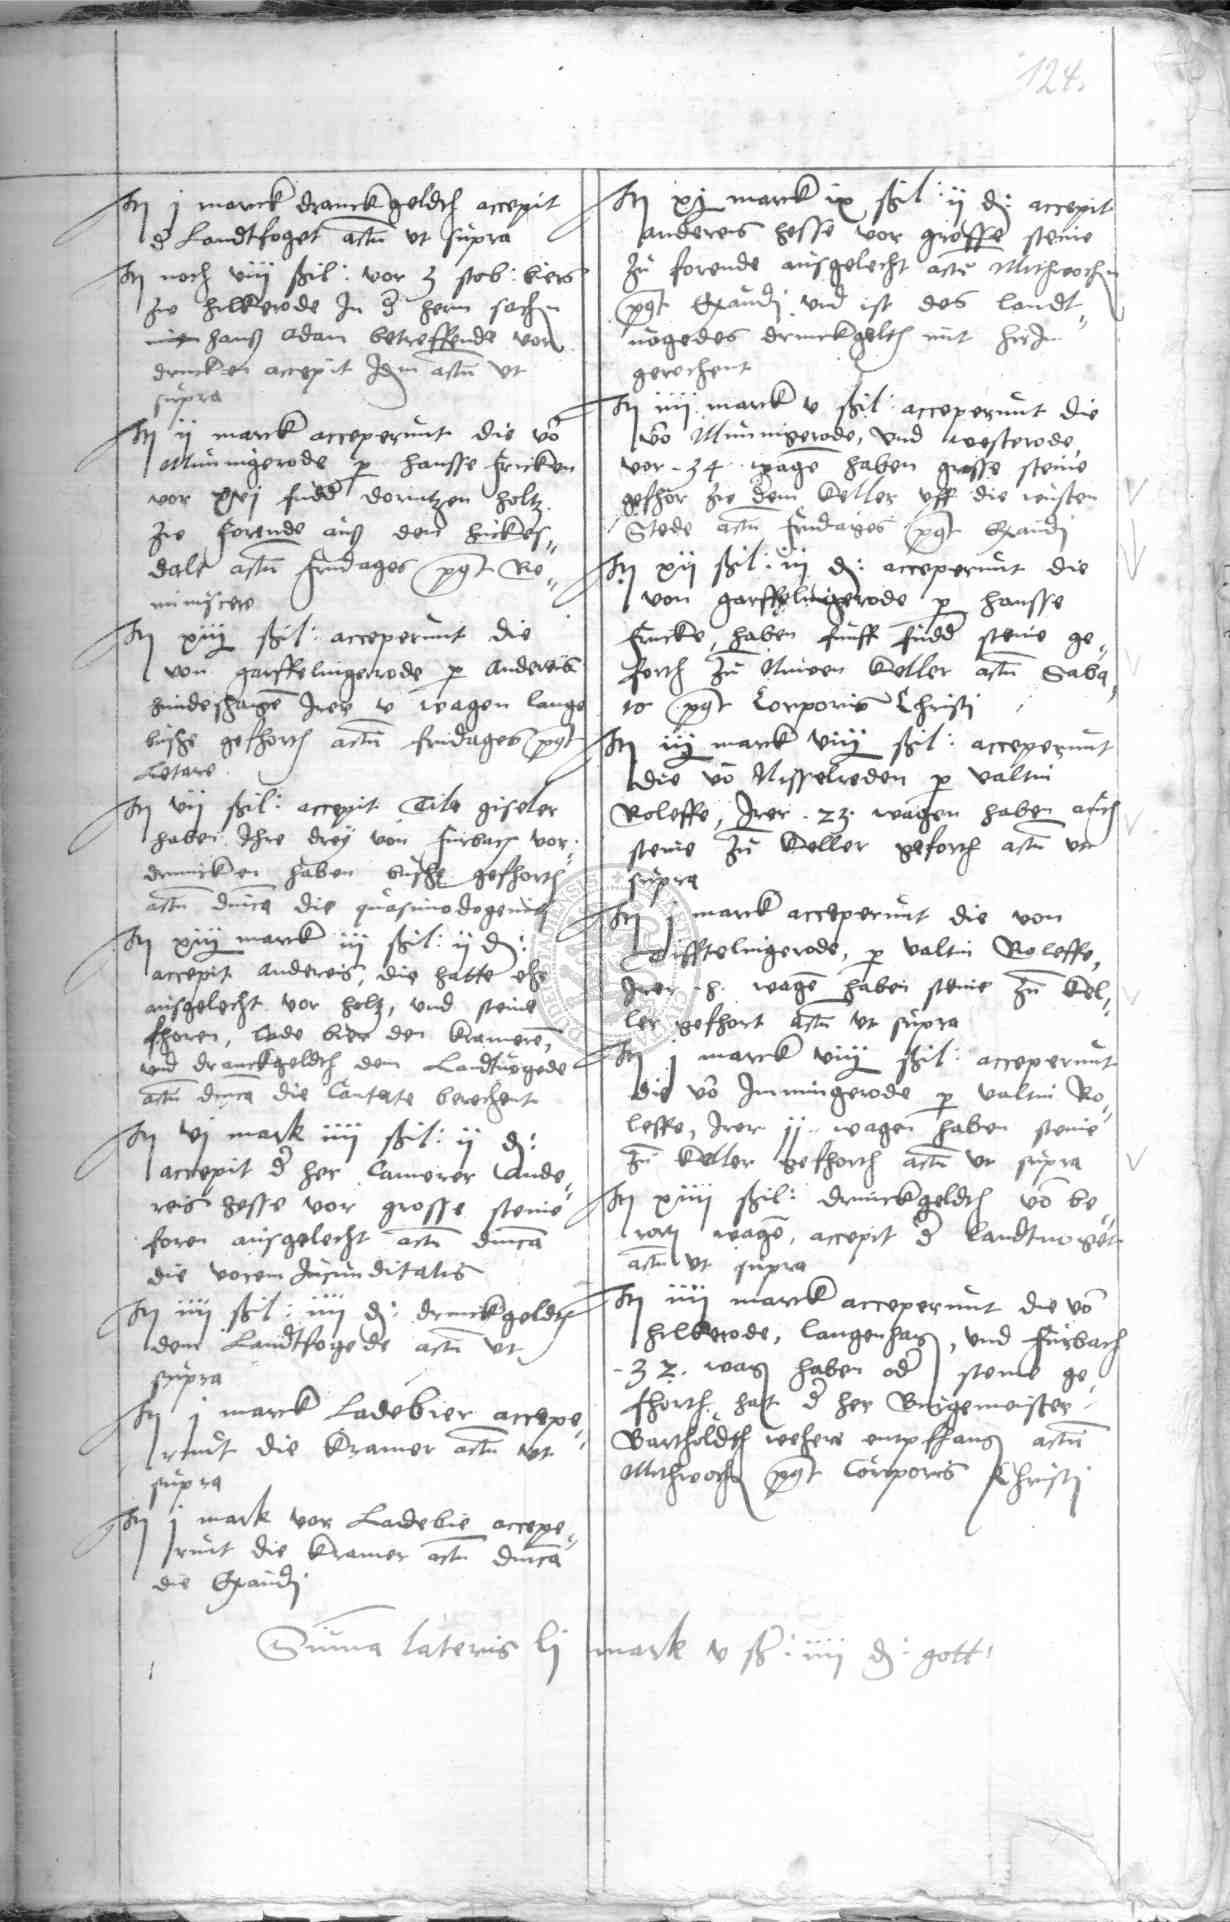 124.
Itm j marck dranckgeldth accepit
d Landtfoget actu ut supra
Itm noch viij ßil: vor 3 stob: biers
Zw hilkerode In d hern sachen
hanß Adam betreffende vor
druncken accepit Idem actu ut
supra
Itm ij marck acceperunt die vo
Minnigerode p hansse Fricken
vor xvj fudd dorntzen holtz
Zw forende auß dem
dale actu fridages pqt Re„
miniscere
Itm xiij ßil: acceperunt die
von gerffelingerode p Andereis
hindeshagen Irer v wagen lange
busche gefhorth actu fridages pqt
Letare
Itm vij ßil: accepit Tile giseler
haben Ihre drey von furbach vor„
druncken haben busche gefhorth
actu dnica die quasimodogeniti
Itm xiij marck iij ßil: ij d:
accepit Andereis, die hatte ehr
ausgelecht vor holtz, und steine
fhoren, lade bier den kramern,
und dranckgeldth dem Landtvogede
actu dnica die Cantate berechent
Itm vj mark iiij ßil: ij d:
accepit d her Camerer Ande„
reis hesse vor grosse steine
foren ausgelecht actu dnica
die vocem Jucunditatis
Itm iiij ßil: iiij d: drinckgeldth
dem Landtfogede actu ut
supra
Itm j marck Ladebier accepe„
runt die Kramer actu ut
supra
Itm j mark vor Ladebie accepe„
runt die Kramer actu dnica
die Exaudj
Itm xj marck ix ßil: ij d: accepit
Andereis hesse vor grosse steine
Zu forende ausgelecht actu Mithwochen
pqt Exaudj und ist des landt„
vogedes drinckgelth mit hirIn
gerechent
Itm iiij marck v ßil: acceperunt die
vo Minnigerode, und westerode
vor 34 wage haben grosse steine
gefhor Zw dem Keller uff die wusten
Stede actu fridages pqt Exaudj
Itm xij ßil: iij d: acceperunt die
von garffelingerode p hansse
Fricke, haben funff fudd steine ge„
forth Zu Nuwen Keller actu Saba„
to pqt Corporis Christi
Itm iij marck viij ßil: acceperunt
die vo Nisselreden p valtin
Roleffe, Irer 23 wagen haben auch
steine Zu Keller geforth actu ut
supra
Itm j marck acceperunt die von
Tifftelingerode, p valtin Roleffe,
Irer 8 wage haben steine Zu Kel„
ler gefhort actu ut supra
Itm j marck viij ßil: acceperunt
die vo Immingerode p valtin Ro„
leffe, Irer 11 wagen haben steine
Zu Keller gefhorth actu ut supra
Itm xiiij ßil: drinckgeldth vo be„
wage, accepit d Landtvoget
actu ut supra
Itm iiij marck acceperunt die vo
hilkerode, langenhag, und furbach
32 wag haben od steine ge„
fhorth hat d her Burgemeister
Bartholdth wehere entpffang actu
Mithwoch pqt Corporis Christi
Suma lateris lj mark v ß: iiij d: gott